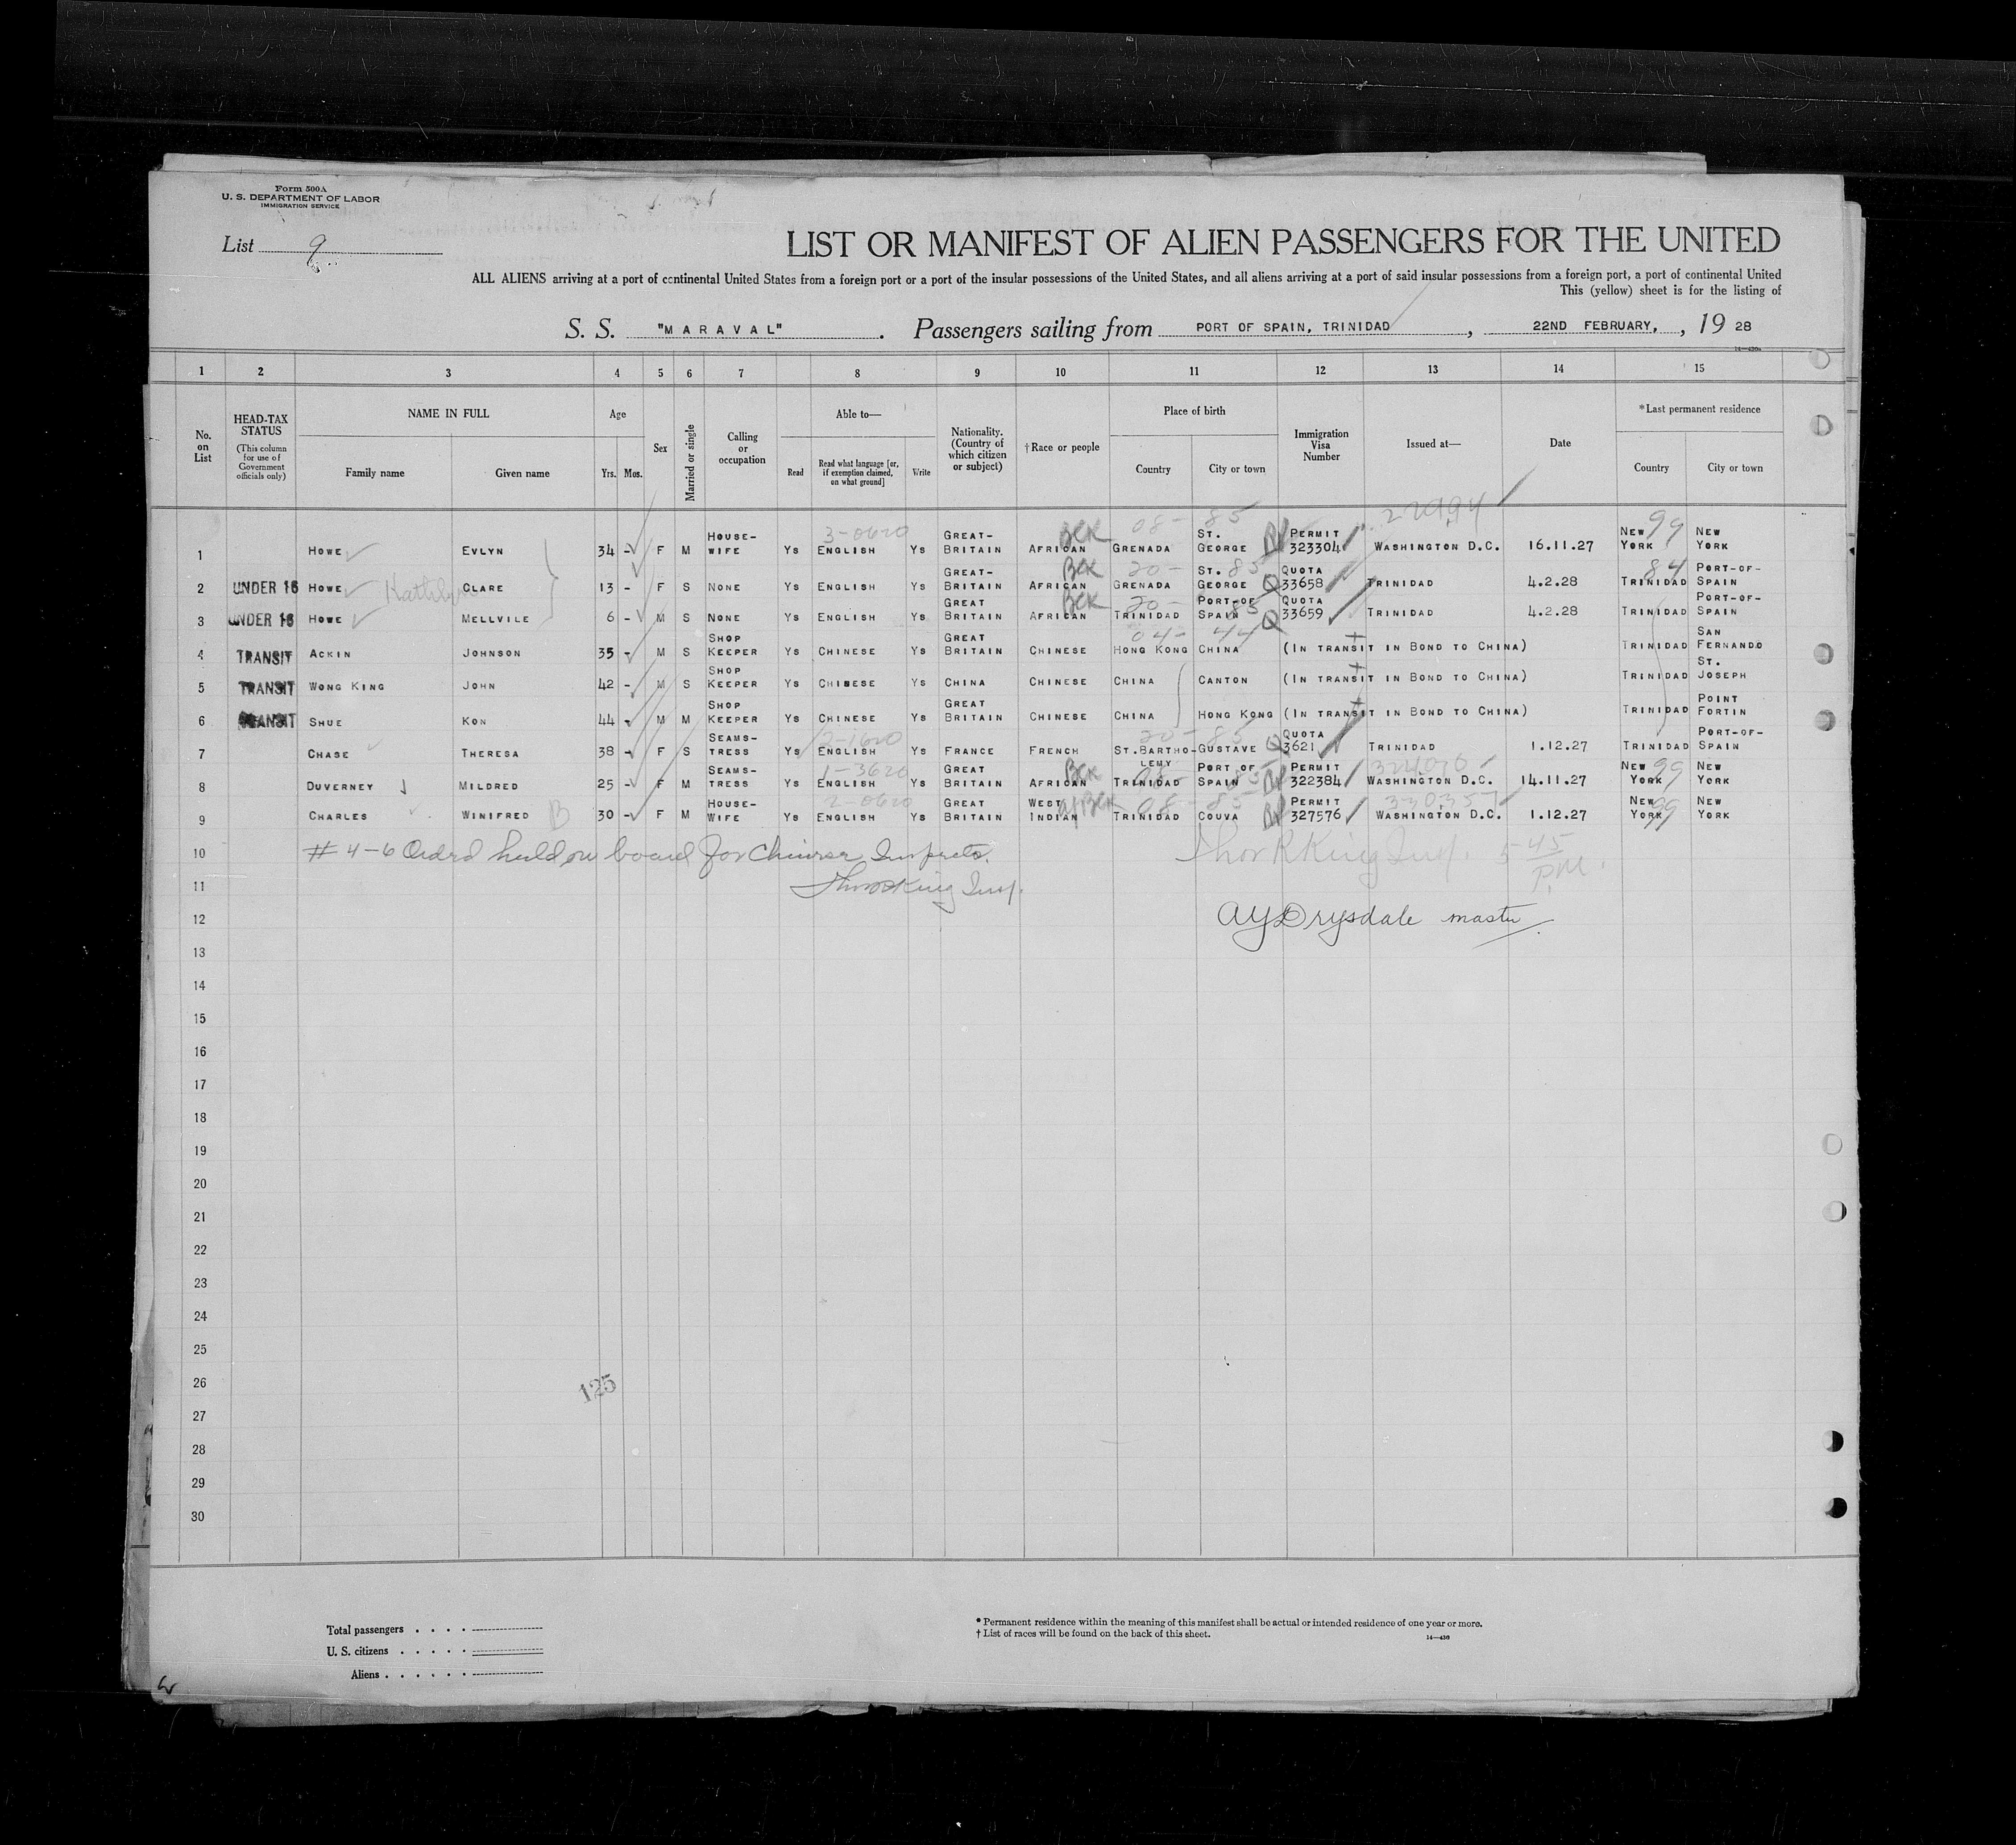 Form 500A
U. S. DEPARTMENT OF LABOR
IMMIGRATION SERVICE
List 9
LIST OR MANIFEST OF ALIEN PASSENGERS FOR THE UNITED
ALL ALIENS arriving at a port of continental United States from a foreign port or a port of the insular possessions of the United States, and all aliens arriving at a port of said insular possessions from a foreign port, a port of continental United
This (yellow) sheet is for the listing of
S. S. "MARAVAL". Passengers sailing from PORT OF SPAIN, TRINIDAD, 22ND FEBRUARY, , 19 28
1 2 3 4 5 6 7 8 9 10 11 12 13 14 15
No. on List HEAD-TAX STATUS (This column for use of Government officials only) NAME IN FULL Family name Given name Age Yrs. Mos. Sex Married or single Calling or occupation Able to— Read Read what language [or, if exemption claimed, on what ground] Write Nationality. (Country of which citizen or subject) †Race or people Place of birth Country City or town Immigration Visa Number Issued at— Date *Last permanent residence Country City or town
1 HOWE EVLYN 34 - F M HOUSE-WIFE YS 3-0620 ENGLISH YS GREAT-BRITAIN AFRICAN BCK 08- 85 GRENADA ST. GEORGE PERMIT 323304 WASHINGTON D.C. 16.11.27 NEW YORK 99 NEW YORK
2 UNDER 16 HOWE CLARE 13 - F S NONE YS ENGLISH YS GREAT-BRITAIN AFRICAN BCK 20- 85 GRENADA ST. GEORGE Q QUOTA 33658 TRINIDAD 4.2.28 TRINIDAD 84 PORT-OF-SPAIN
3 UNDER 16 HOWE MELLVILE 6 - M S NONE YS ENGLISH YS GREAT BRITAIN AFRICAN BCK 20- 85 TRINIDAD PORT-OF SPAIN Q QUOTA 33659 TRINIDAD 4.2.28 TRINIDAD PORT-OF-SPAIN
4 TRANSIT ACKIN JOHNSON 35 - M S SHOP KEEPER YS CHINESE YS GREAT BRITAIN CHINESE 04- 44 HONG KONG CHINA (IN TRANSIT IN BOND TO CHINA) TRINIDAD SAN FERNANDO
5 TRANSIT WONG KING JOHN 42 - M S SHOP KEEPER YS CHINESE YS CHINA CHINESE CHINA CANTON (IN TRANSIT IN BOND TO CHINA) TRINIDAD ST. JOSEPH
6 TRANSIT SHUE KON 44 - M M SHOP KEEPER YS CHINESE YS GREAT BRITAIN CHINESE CHINA HONG KONG (IN TRANSIT IN BOND TO CHINA) TRINIDAD POINT FORTIN
7 CHASE THERESA 38 - F S SEAMS-TRESS YS 2-1620 ENGLISH YS FRANCE FRENCH 20- 85 ST.BARTHO-LEMY GUSTAVE Q QUOTA 3621 TRINIDAD 1.12.27 TRINIDAD PORT-OF-SPAIN
8 DUVERNEY MILDRED 25 - F M SEAMS-TRESS YS 1-3620 ENGLISH YS GREAT BRITAIN AFRICAN BCK 08- 85 TRINIDAD PORT OF SPAIN PERMIT 322384 WASHINGTON D.C. 14.11.27 NEW YORK 99 NEW YORK
9 CHARLES WINIFRED B 30 - F M HOUSE-WIFE YS 2-0620 ENGLISH YS GREAT BRITAIN WEST INDIAN 08- 85 TRINIDAD COUVA PERMIT 327576 330357 WASHINGTON D.C. 1.12.27 NEW YORK 99 NEW YORK
10 # 4-6 Ordrd held on board for Chinese Inspector. Thor R King Insp. 5 45 P.M.
11 Thor R King Insp.
12 AY Drysdale master
13
14
15
16
17
18
19
20
21
22
23
24
25
26 125
27
28
29
30
Total passengers . . . .
U. S. citizens . . . . .
Aliens . . . . . .
* Permanent residence within the meaning of this manifest shall be actual or intended residence of one year or more.
† List of races will be found on the back of this sheet.
14—430